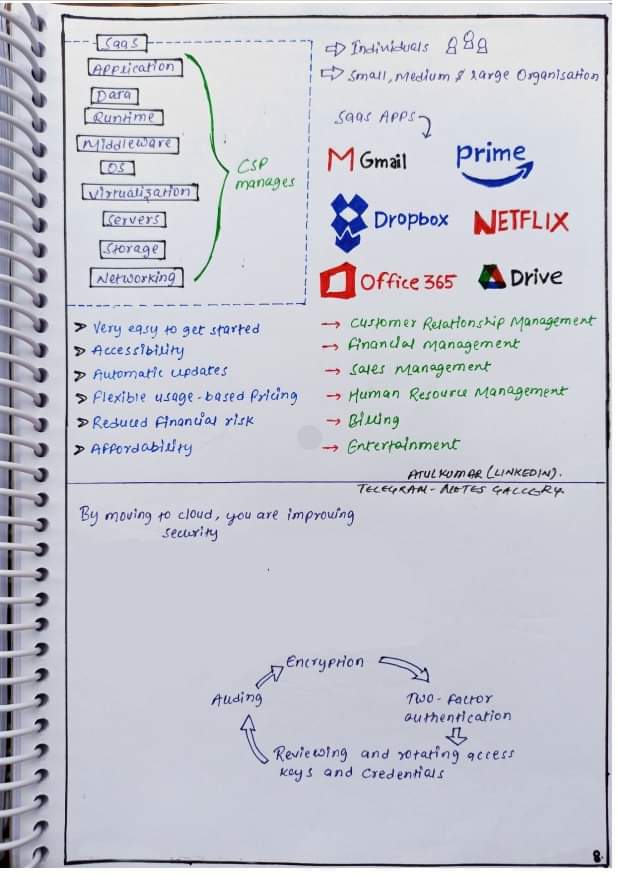 SaaS
Application
Data
Runtime
Middleware
OS
Virtualization
Servers
Storage
Networking
CSP
manages
Individuals
Small, Medium & Large Organisation
SaaS Apps
M Gmail
prime
Dropbox
NETFLIX
Office 365
Drive
Very easy to get started
Accessibility
Automatic updates
Flexible usage-based Pricing
Reduced financial risk
Affordability
Customer Relationship Management
Financial Management
Sales Management
Human Resource Management
Billing
Entertainment
ATULKUMAR (LINKEDIN).
TELEGRAM - NOTES GALLERY.
By moving to cloud, you are improving
security
Encryption
Two-factor
authentication
Reviewing and rotating access
keys and credentials
Auding
8.